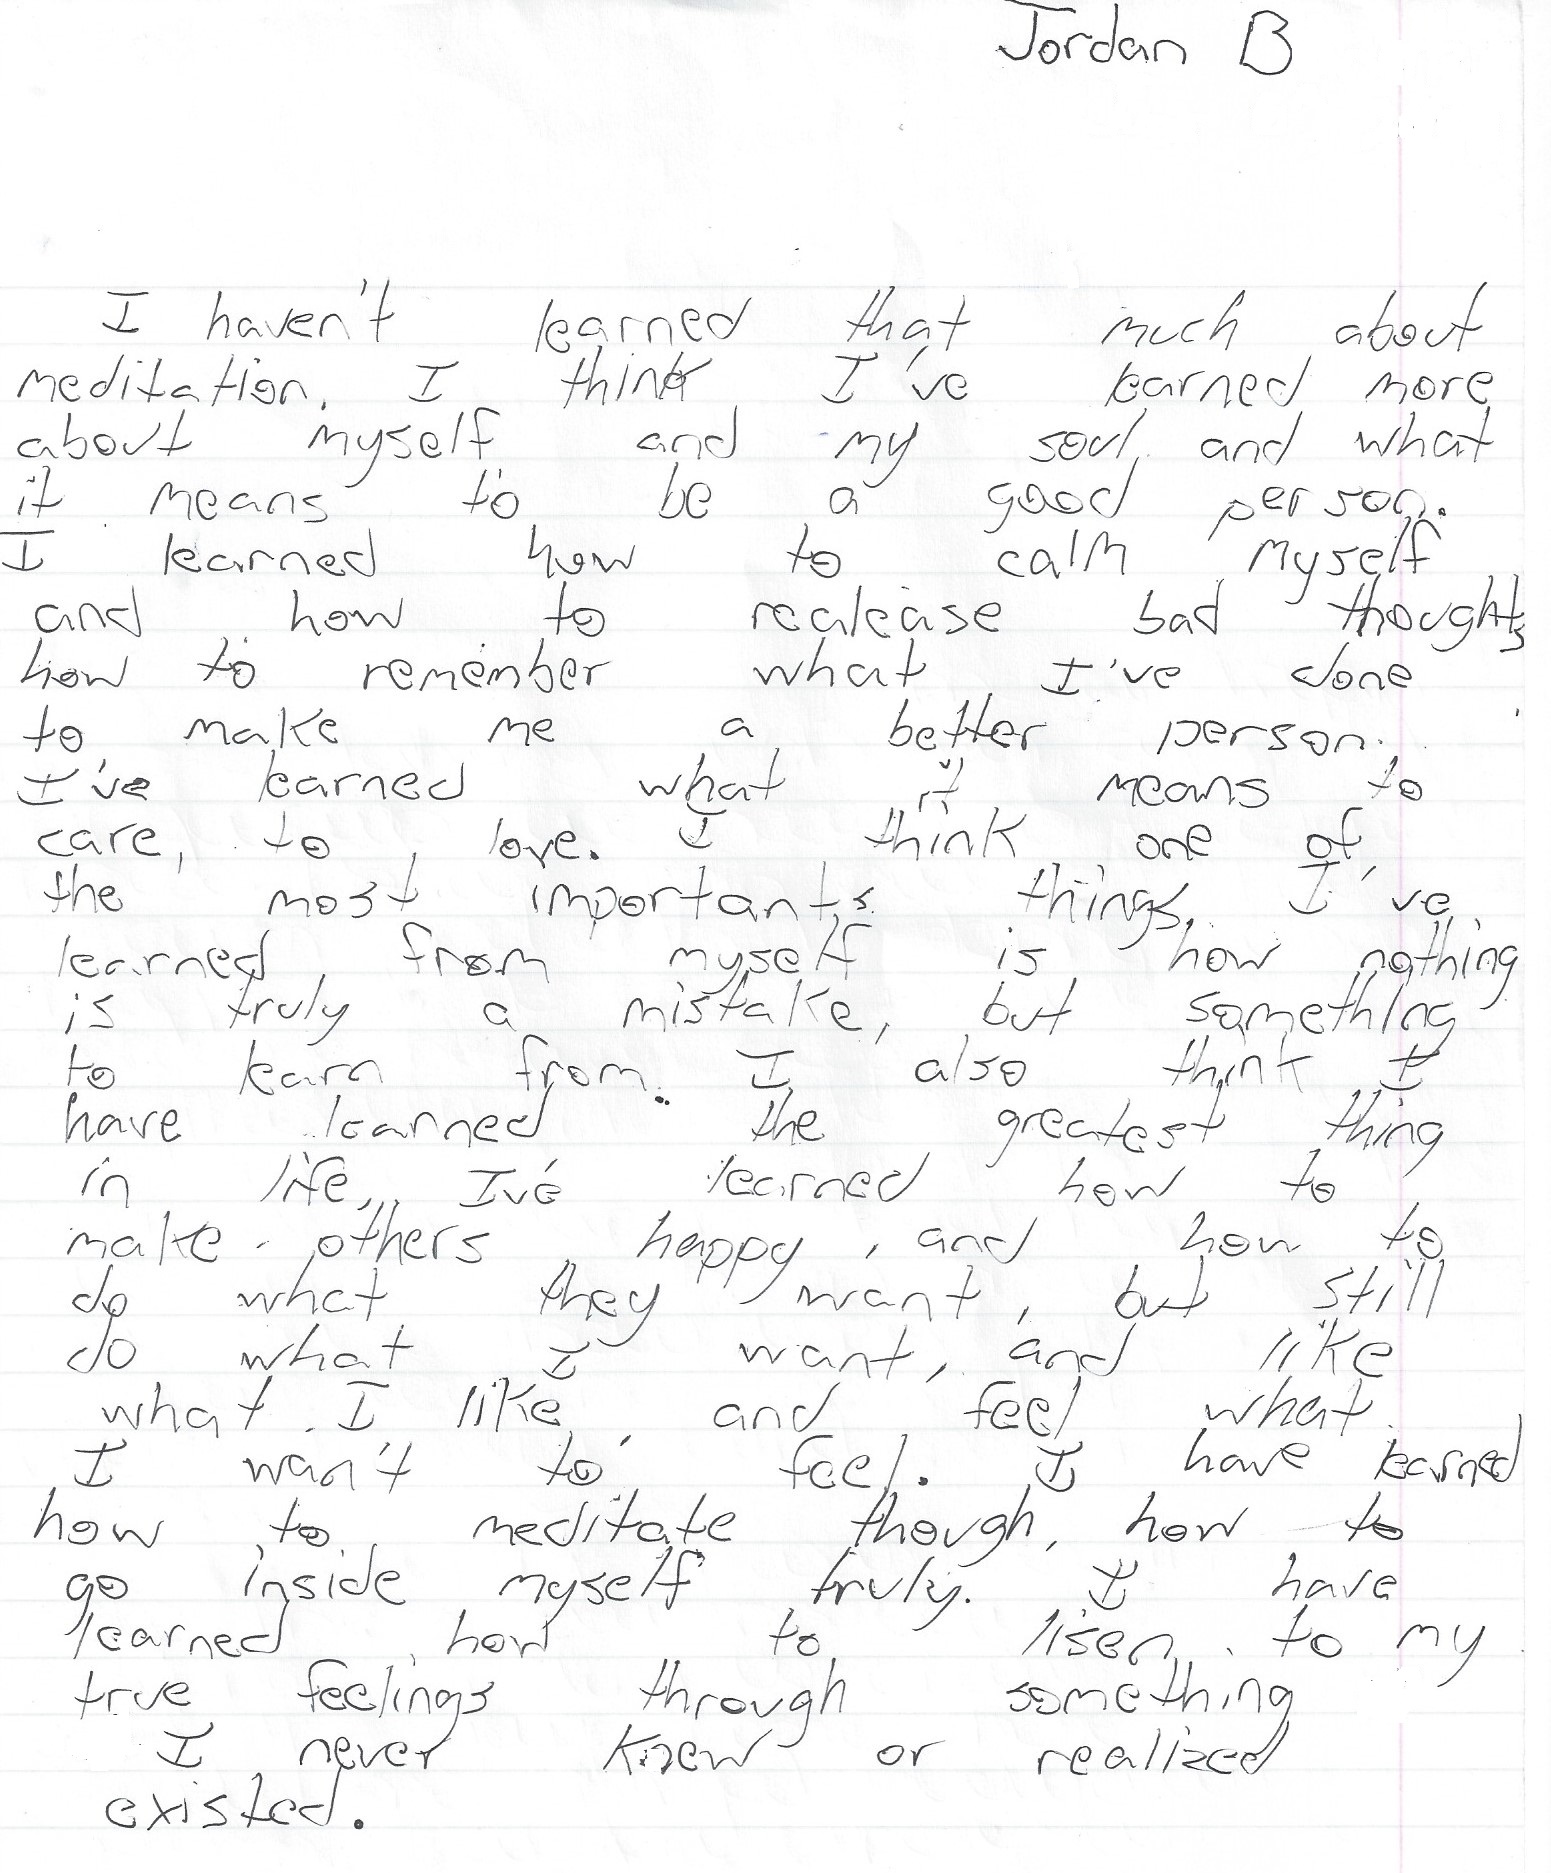 Jordan B
I haven't learned that much about
meditation. I think I've learned more
about myself and my soul and what
it means to be a good person.
I learned how to calm myself
and how to realease bad thoughts
how to remember what I've done
to make me a better person.
I've learned what it means to
care, to love. I think one of
the most importants things I've
learned from myself is how nothing
is truly a mistake, but something
to learn from. I also think I
have learned the greatest thing
in life, I've learned how to
make others happy, and how to
do what they want, but still
do what I want, and like
what I like, and feel what
I wan't to feel. I have learned
how to meditate though, how to
go inside myself truly. I have
learned how to lisen to my
true feelings through something
I never knew or realized
existed.